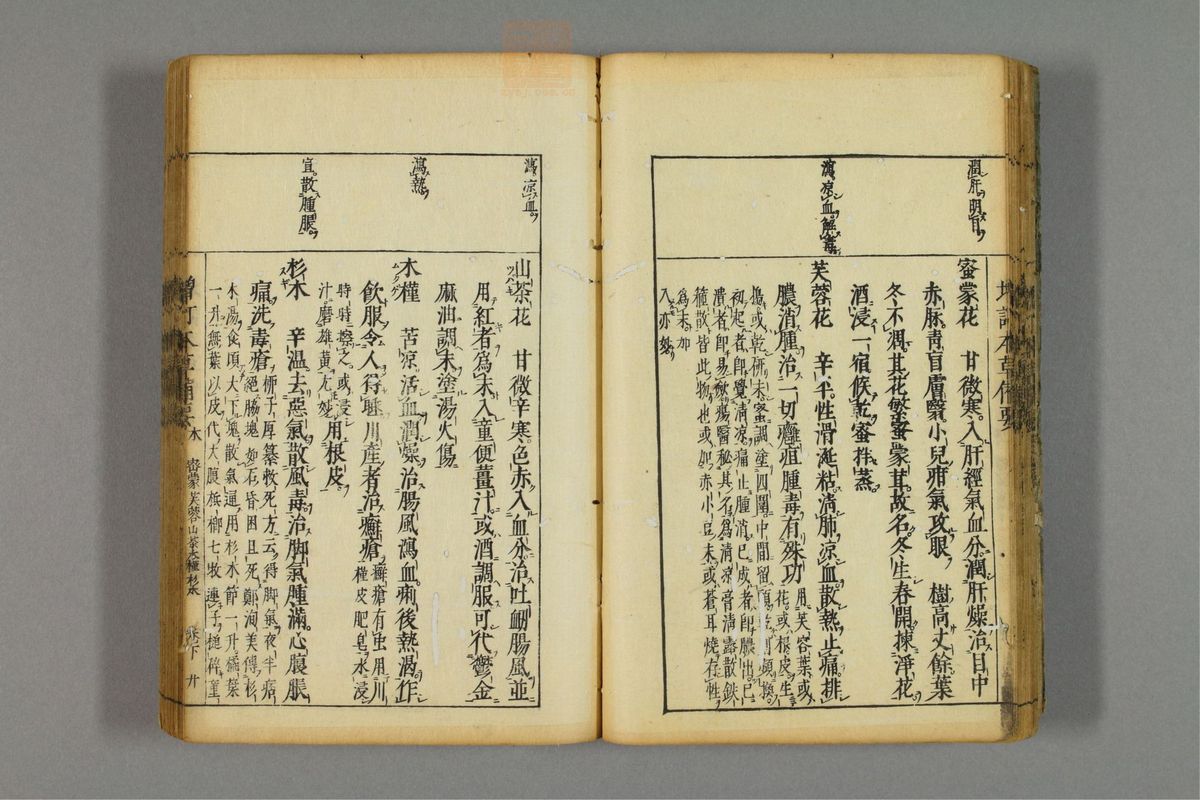 潤肝明目
瀉凉血解毒
蜜蒙花　甘微寒。入肝經氣血分。潤肝燥。治目中
赤脉青盲膚翳。小兒疳氣攻眼。　樹高丈餘。葉
冬不凋。其花繁蜜蒙茸。故名。冬生春開。揀淨花
酒浸一宿。候乾蜜拌蒸。
芙蓉花　辛平。性滑涎粘。清肺凉血。散熱止痛。排
膿消腫。治一切癰疽腫毒有殊功。用芙蓉葉或
花。或根皮。生
搗或乾研末蜜調塗四圍中間留頭乾則頻換。
初起者即覺清凉。痛止腫消。已成者即膿出。已
潰者即易斂。瘍醫秘其名為清凉膏清露散鉄
箍散。皆此物也。或加赤小豆末。或蒼耳燒存性
為末加
入亦妙
瀉凉血
瀉熱
宣散腫脹
山茶花　甘微辛寒。色赤入血分。治吐衄腸風。並
ツバキ
用紅者為末。入童便薑汁或酒調服。可代鬱金。
麻油調末。塗湯火傷
木槿　苦凉。活血潤燥。治腸風瀉血。痢後熱渴。作
ムクゲ
飲服。令人得睡。川産者治癬瘡。癬瘡有虫。用川
槿皮肥皂水浸
時時搽之。或浸
汁磨雄黄尤妙。用根皮
杉木　辛溫。去惡氣。散風毒。治脚氣腫滿。心腹脹
スギ
痛。洗毒瘡。栁子厚纂救死方云。得脚氣夜半痞
絕。脇塊如石。昏困且死。鄭洵美傳杉
木湯。食頃大下塊散氣通。用杉木節一升。橘葉
一升。無葉以皮代。大腹檳榔七枚。連子槌碎。童
木　密蒙芙蓉山茶木槿杉木　卷下　廿